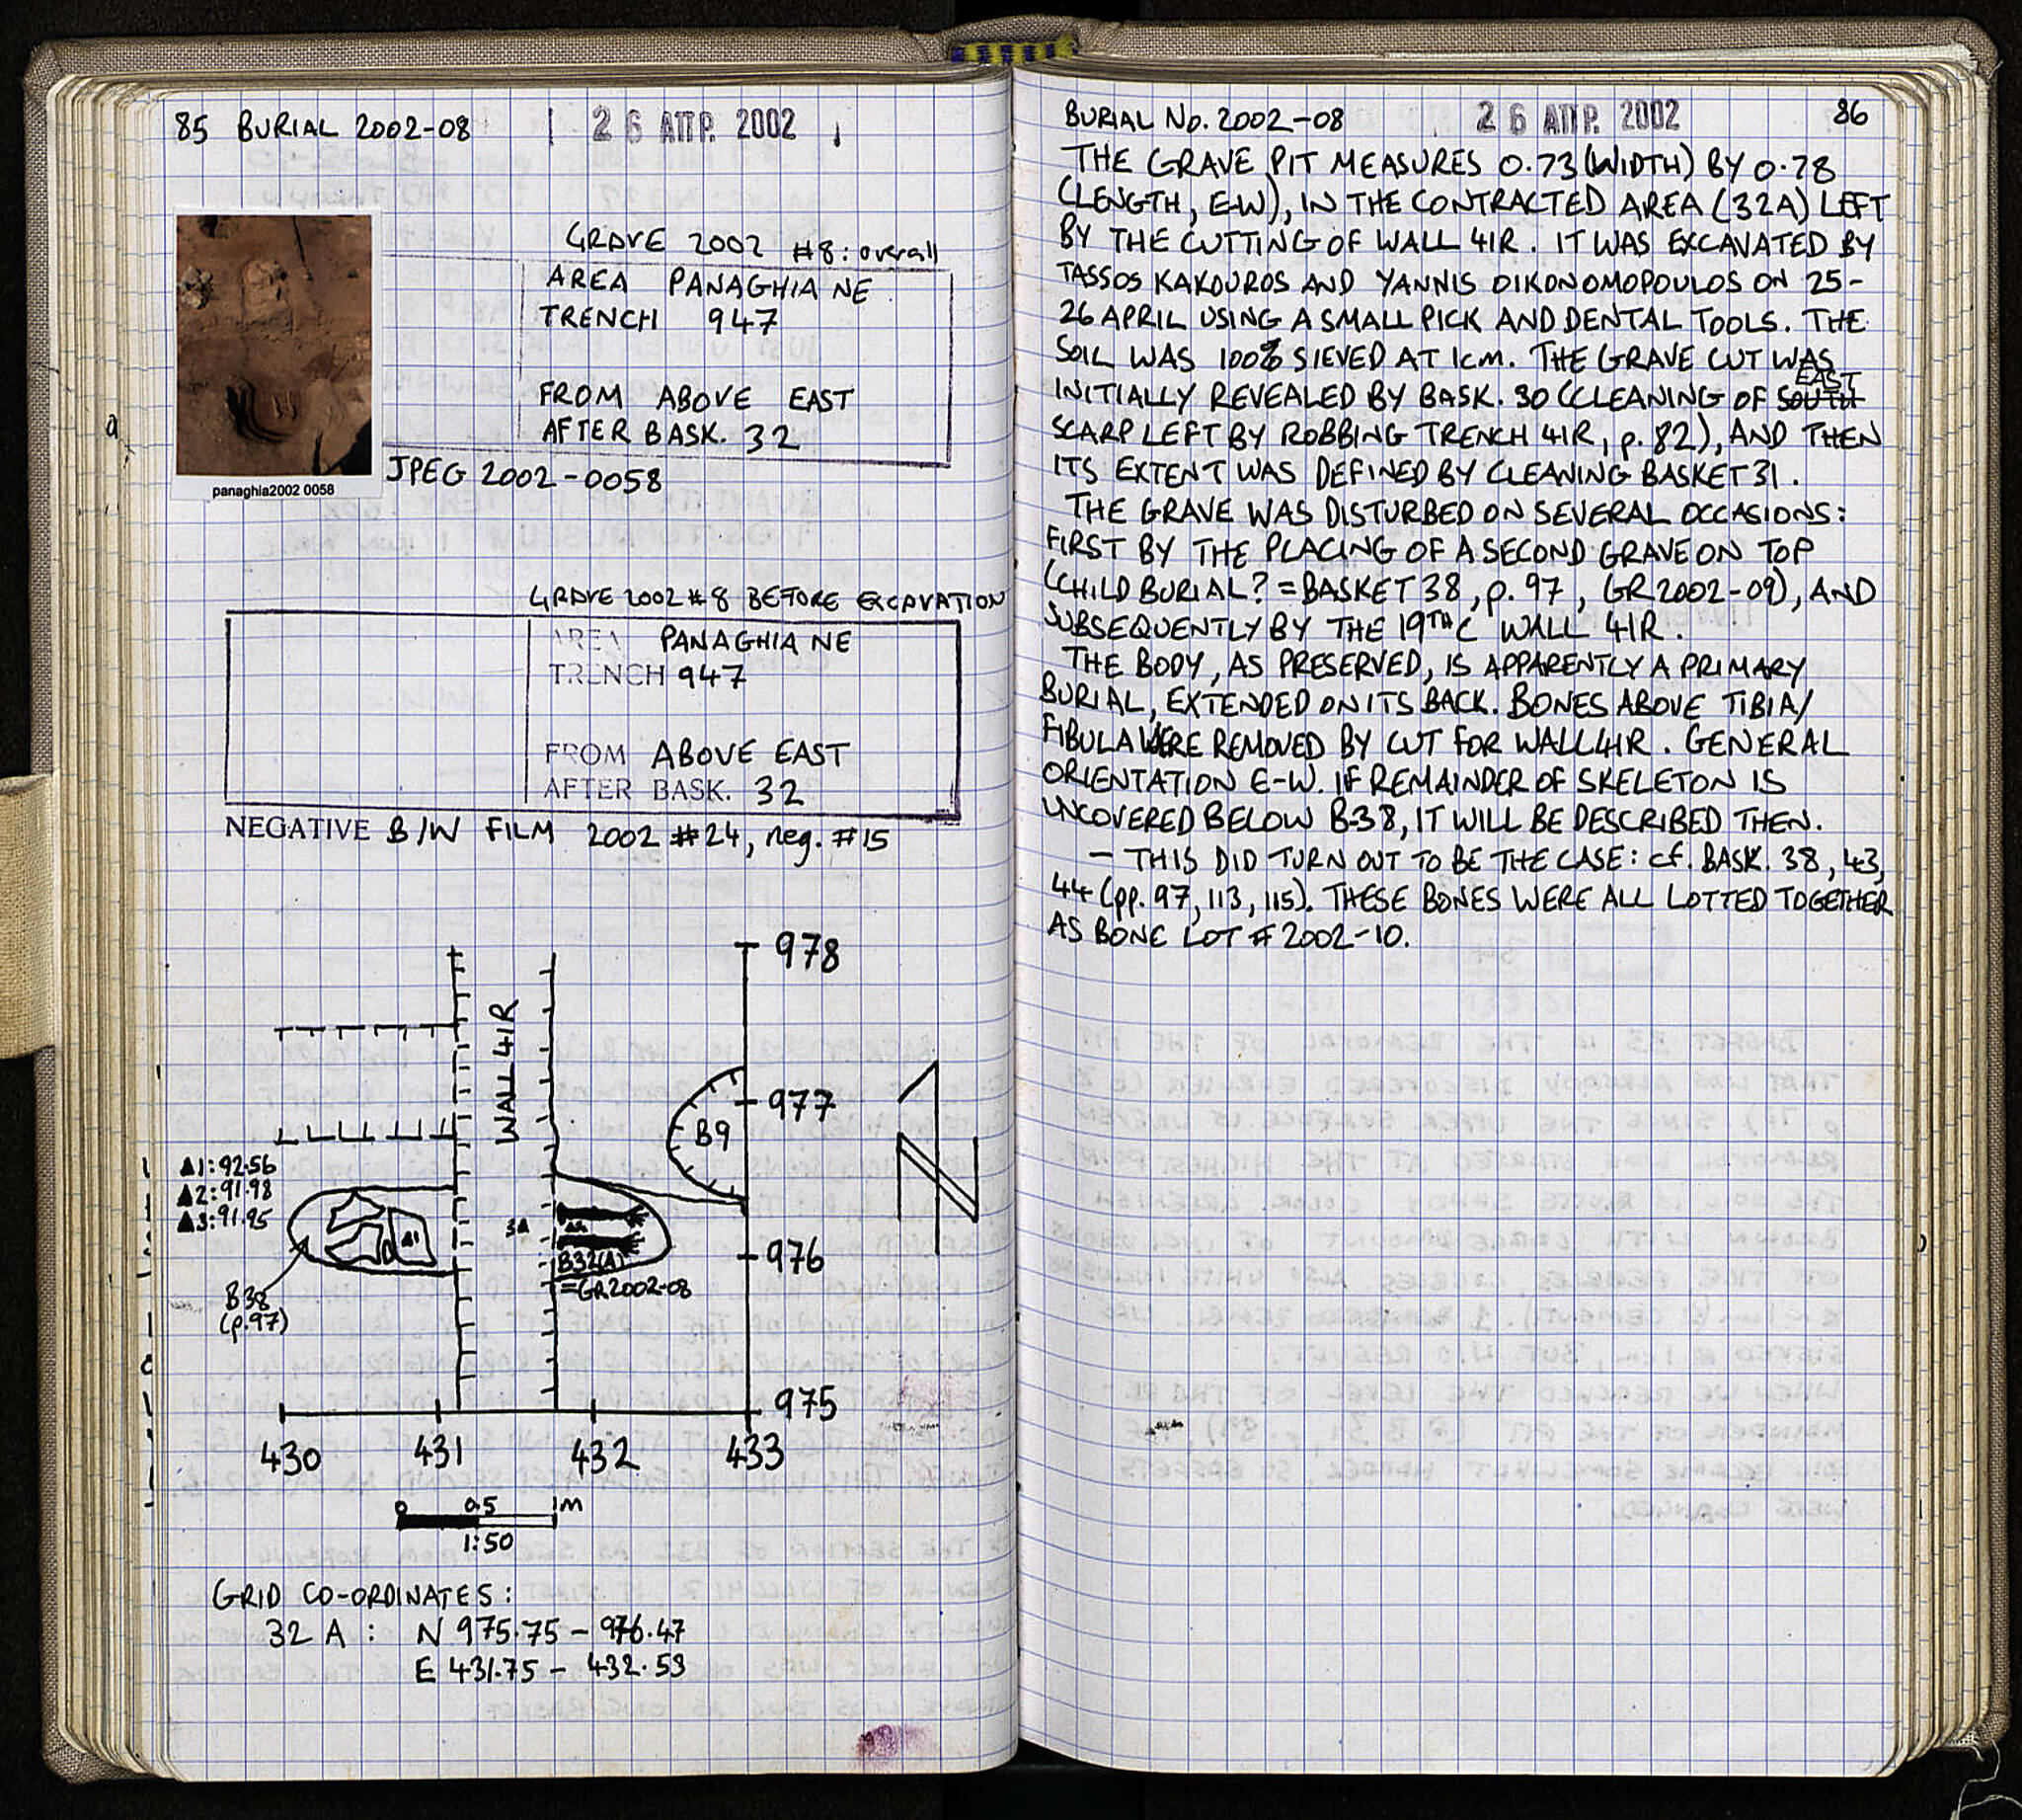 85 BURIAL 2002-08
26 ΑΠΡ. 2002
GRAVE 2002 #8: overall
AREA PANAGHIA NE
TRENCH 947
FROM ABOVE EAST
AFTER BASK. 32
JPEG 2002-0058
panaghia2002 0058
GRAVE 2002 #8 BEFORE EXCAVATION
AREA PANAGHIA NE
TRENCH 947
FROM ABOVE EAST
AFTER BASK. 32
NEGATIVE B/W FILM 2002 #24, neg. #15
978
WALL 41R
977
B9
▲1: 92.56
▲2: 91.98
▲3: 91.95
▲1
3▲
976
B32(A)
=GR2002-08
B38
(p.97)
975
430 431 432 433
0 0.5 1m
1:50
GRID CO-ORDINATES:
32 A: N 975.75 - 976.47
E 431.75 - 432.53
BURIAL No. 2002-08 26 ΑΠΡ. 2002 86
THE GRAVE PIT MEASURES 0.73 (WIDTH) BY 0.78
(LENGTH, E-W), IN THE CONTRACTED AREA (32A) LEFT
BY THE CUTTING OF WALL 41R. IT WAS EXCAVATED BY
TASSOS KAKOUROS AND YANNIS OIKONOMOPOULOS ON 25-
26 APRIL USING A SMALL PICK AND DENTAL TOOLS. THE
SOIL WAS 100% SIEVED AT 1cm. THE GRAVE CUT WAS
INITIALLY REVEALED BY BASK. 30 (CLEANING OF SOUTH EAST
SCARP LEFT BY ROBBING TRENCH 41R, p. 82), AND THEN
ITS EXTENT WAS DEFINED BY CLEANING BASKET 31.
THE GRAVE WAS DISTURBED ON SEVERAL OCCASIONS:
FIRST BY THE PLACING OF A SECOND GRAVE ON TOP
(CHILD BURIAL? = BASKET 38, p. 97, GR 2002-09), AND
SUBSEQUENTLY BY THE 19TH C WALL 41R.
THE BODY, AS PRESERVED, IS APPARENTLY A PRIMARY
BURIAL, EXTENDED ON ITS BACK. BONES ABOVE TIBIA/
FIBULA WERE REMOVED BY CUT FOR WALL 41R. GENERAL
ORIENTATION E-W. IF REMAINDER OF SKELETON IS
UNCOVERED BELOW B38, IT WILL BE DESCRIBED THEN.
- THIS DID TURN OUT TO BE THE CASE: cf. BASK. 38, 43,
44 (pp. 97, 113, 115). THESE BONES WERE ALL LOTTED TOGETHER
AS BONE LOT # 2002-10.